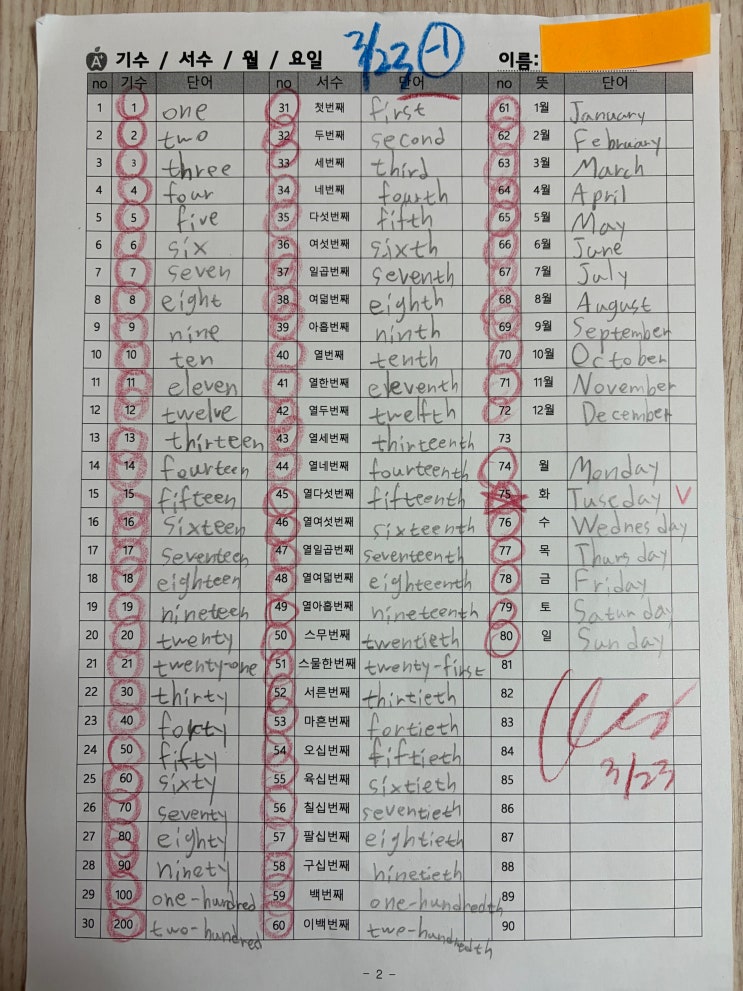 A+ 기수 / 서수 / 월 / 요일 3/23 -1 이름:
no 기수 단어 no 서수 단어 no 뜻 단어
1 1 one 31 첫번째 first 61 1월 January
2 2 two 32 두번째 second 62 2월 February
3 3 three 33 세번째 third 63 3월 March
4 4 four 34 네번째 fourth 64 4월 April
5 5 five 35 다섯번째 fifth 65 5월 May
6 6 six 36 여섯번째 sixth 66 6월 June
7 7 seven 37 일곱번째 seventh 67 7월 July
8 8 eight 38 여덟번째 eighth 68 8월 August
9 9 nine 39 아홉번째 ninth 69 9월 September
10 10 ten 40 열번째 tenth 70 10월 October
11 11 eleven 41 열한번째 eleventh 71 11월 November
12 12 twelve 42 열두번째 twelfth 72 12월 December
13 13 thirteen 43 열세번째 thirteenth 73
14 14 fourteen 44 열네번째 fourteenth 74 월 Monday
15 15 fifteen 45 열다섯번째 fifteenth 75 화 Tuseday V
16 16 sixteen 46 열여섯번째 sixteenth 76 수 Wednesday
17 17 seventeen 47 열일곱번째 seventeenth 77 목 Thursday
18 18 eighteen 48 열여덟번째 eighteenth 78 금 Friday
19 19 nineteen 49 열아홉번째 nineteenth 79 토 Saturday
20 20 twenty 50 스무번째 twentieth 80 일 Sunday
21 21 twenty-one 51 스물한번째 twenty-first 81
22 30 thirty 52 서른번째 thirtieth 82
23 40 forty 53 마흔번째 fortieth 83
24 50 fifty 54 오십번째 fiftieth 84
25 60 sixty 55 육십번째 sixtieth 85 3/23
26 70 seventy 56 칠십번째 seventieth 86
27 80 eighty 57 팔십번째 eightieth 87
28 90 ninety 58 구십번째 ninetieth 88
29 100 one-hundred 59 백번째 one-hundredth 89
30 200 two-hundred 60 이백번째 two-hundredth 90
- 2 -